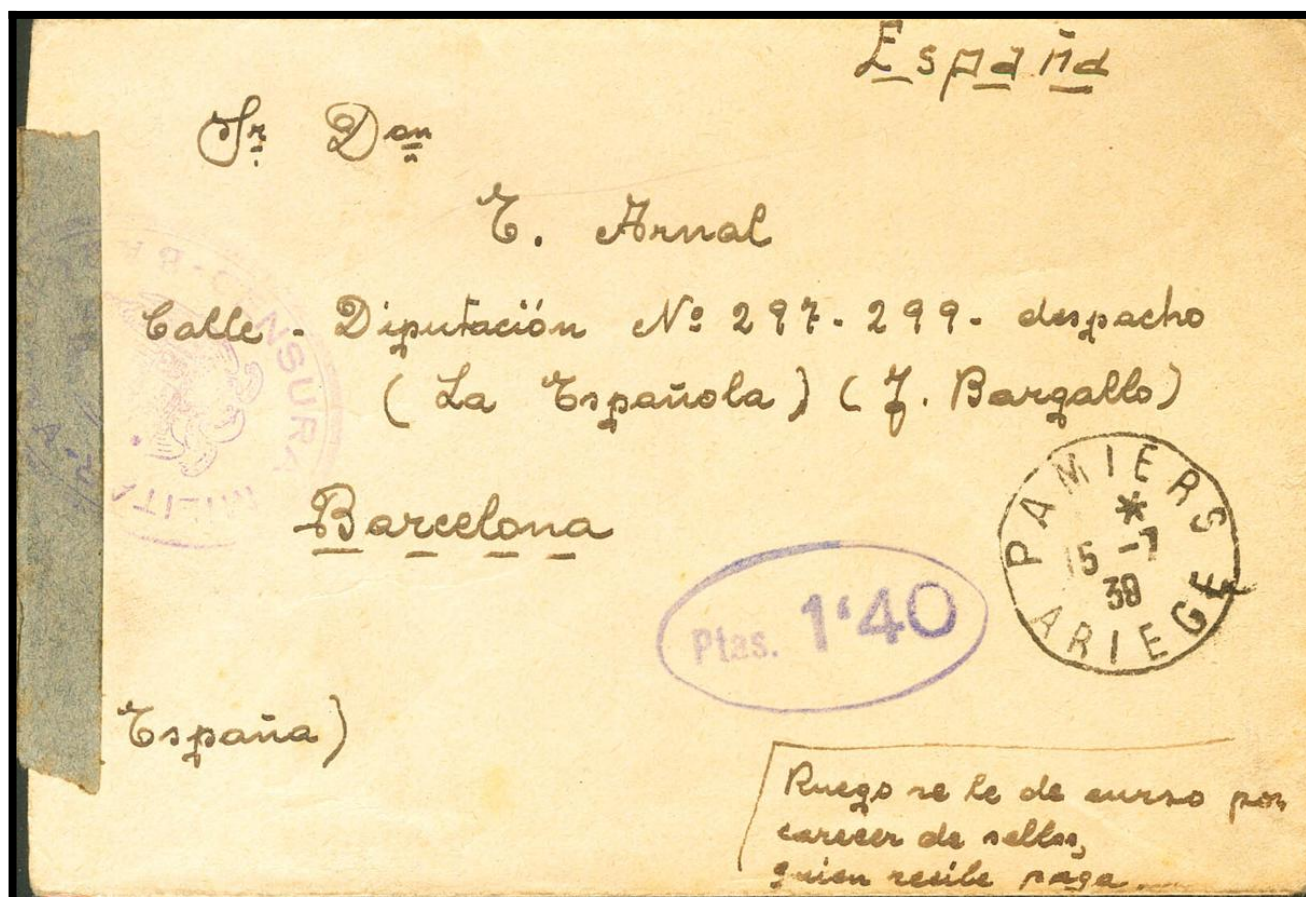 España
Sr. Don
E. Arnal
Calle - Diputación Nº 297-299- despacho
(La Española) (J. Bargallo)
Barcelona
PAMIERS
*
15 -7
39
ARIEGE
Ptas. 1'40
CENSURA MILITAR
España)
Ruego se le de curso por
carecer de sellos,
quien recibe paga.